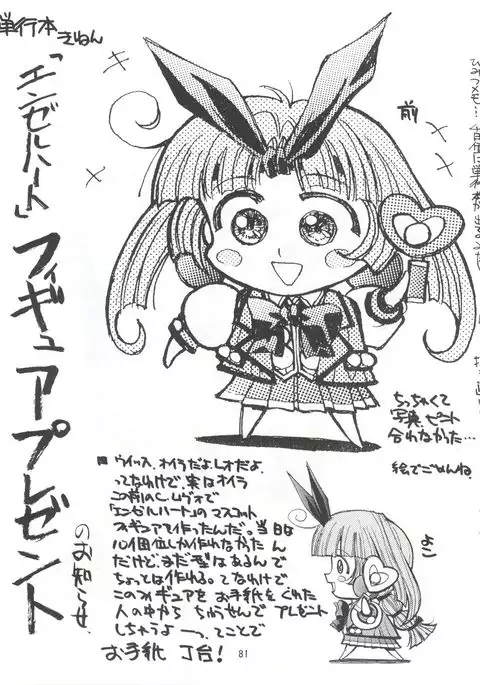 単行本
きねん
「エンゼルハート」フィギュアプレゼント
のお知らせ
前
ちっちゃくて
写真 ピント
合わなかった…
絵でごめんね
よこ
■ ウイッス、オイラだよレオだよ、
ってなわけで、実はオイラ
この前のC.レヴォで
「エンゼルハート」のマスコット
フィギュアを作ったんだ。当日は
10個位しか作れなかったん
だけど、まだ型はあるんで
ちょっとは作れる。てなわけで
このフィギュアを お手紙をくれた
人の中から ちゅうせんで プレゼント
しちゃうよーっ、てことで
お手紙 丁台!
81